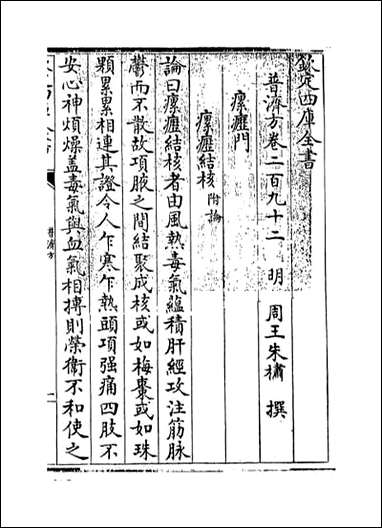 欽定四庫全書
普濟方卷二百九十二　明　周王朱橚　撰
瘰癧門
瘰癧結核附論
論曰瘰癧結核者由風熱毒氣蘊積肝經攻注筋脉
鬱而不散故項腋之間結聚成核或如梅棗或如珠
顆累累相連其證令人乍寒乍熱頭項强痛四肢不
安心神煩燥盖毒氣與血氣相摶則榮衞不和使之
普濟方